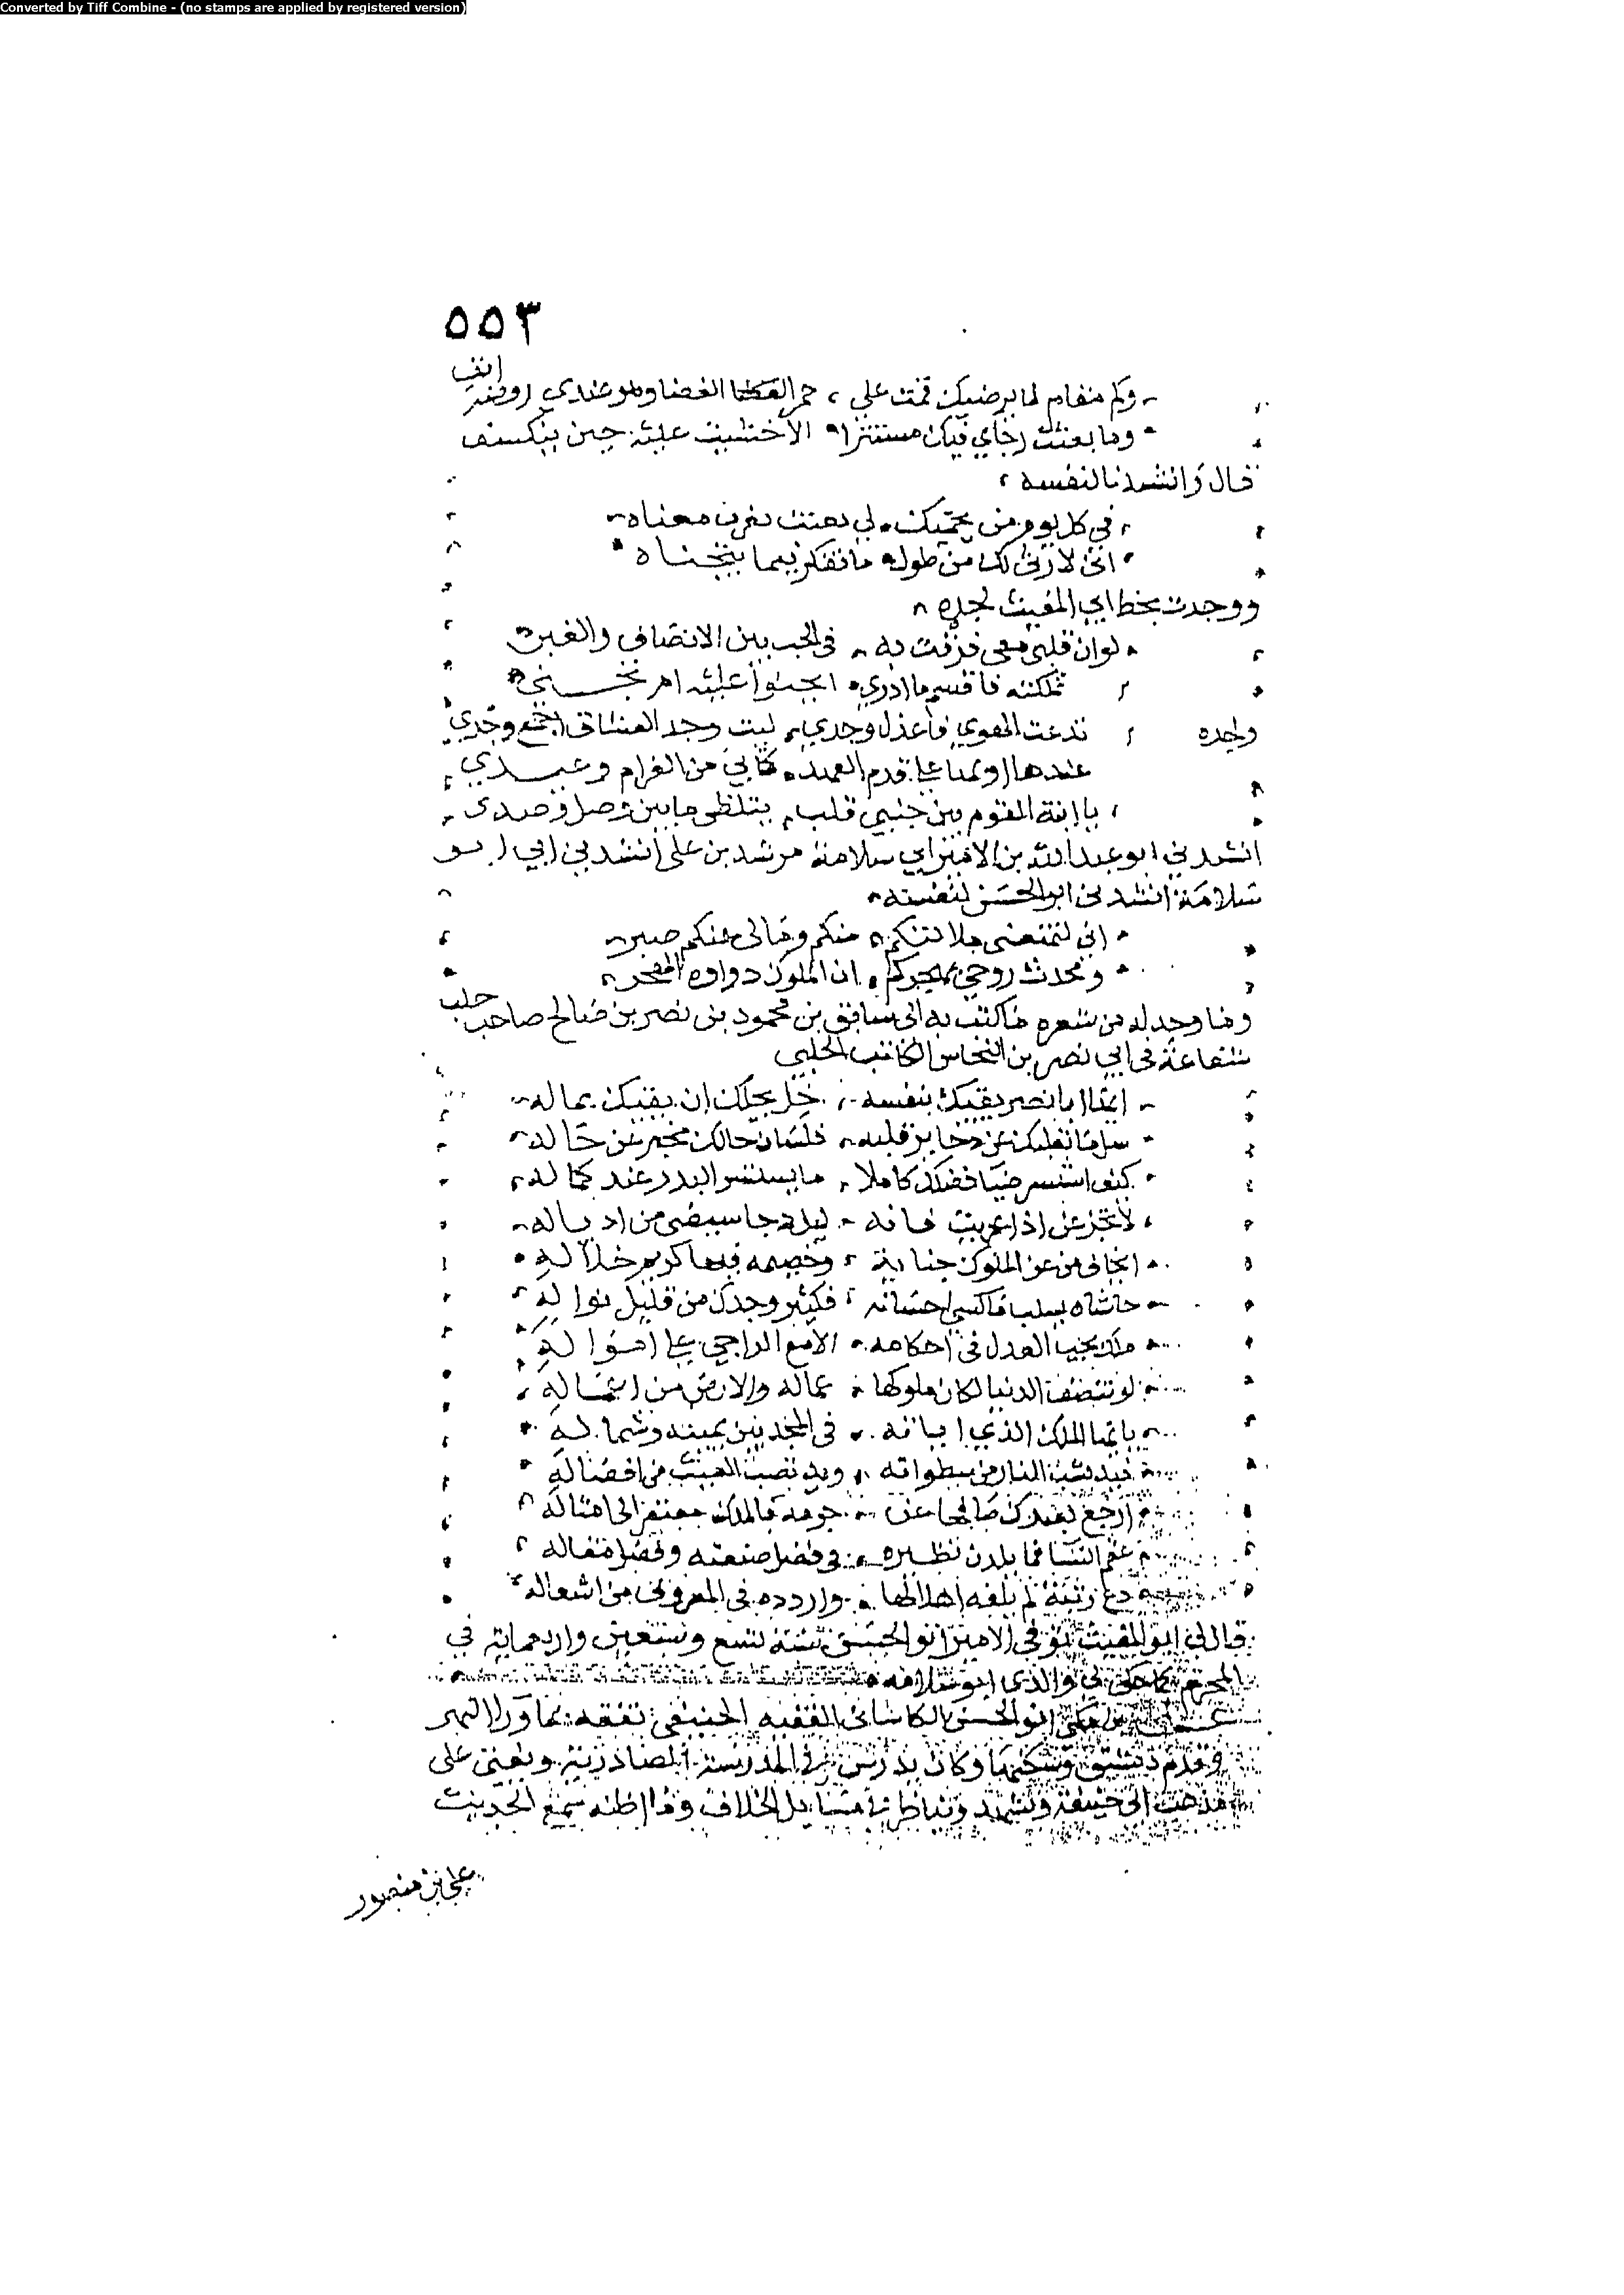 Converted by Tiff Combine - (no stamps are applied by registered version)
٥٥٣
انف
وكم مقام لما يرضيك قمت على جمر الغضا وهو عندي روضة
وما بعثت رجاي فيك مستترا الا خشيت عليه حين ينكسف
قال وانشدنا لنفسه
في كل يوم من تجنيك لي تعنت يغرب معناه
اني لارثي لك من طول ما تفكر فيما تتجناه
ووجدت بخط ابي المغيث لجده
لو ان قلبي معي فرقت به في الحب بين الانصاف والغبن
تملكته فاقسم ما ادري اجنوا عليه ام
ولجده
ليت وجد العشاق اجمع وجدي
عندها اولها على قدم العهد كما بي من الغرام وعندي
يا ابنة القوم بين جنبي قلب يتلظى ما بين وصل وصدى
انشدني ابو عبد الله بن الامير ابي سلامة مرشد بن علي انشدني ابي ابو
سلامة انشدني ابو الحسن لنفسه
اني ليمنعني ملالتكم منكم ومالي عنكم صبر
وتحدث روحي بهجركم ان الملوك دواوه الهجر
ومما وجد له من شعره ما كتب به الى سابق بن محمود بن نصر بن صالح صاحب حلب
شفاعة في ابي نصر بن النحاس الكاتب الحلبي
ايها ابا نصر يقيك بنفسه خل يجلك ان يقيك بماله
فلسان حالك مخبر عن حاله
كيف استسر ضيا فضلك كاملا ما يستسر البدر عند كماله
لا تجزعن اذا فانه ليل دجا سيضي من اذباله
وخصمه فيها كريم خلاله
حاشاه يسلب ما كسى احسانه فكثير وجدك من قليل نواله
ملك يجيب العدل في احكامه الا مع الراجي على امواله
لو تنصف الدنيا لكان ملوكها عماله والارض من اعماله
يا ايها الملك الذي في المجد بين يمينه وشماله
فيد تشب النار من سطواته ويد تصب الغيث من افضاله
ارجع لعبدك صافحا عن جرمه فالملك مفتقر الى امثاله
عقم النسا فما يلدن نظيره في فضل صنعته وفضل مقاله
دع رتبة لم يلفه اهلا لها واردده في المعروف من اشغاله
قال لي ابو المغيث توفي الامير ابو الحسن سنة تسع وسبعين واربعماية في
المحرم كما حكى لي والدي ابو سلامة
علي بن مكي ابو الحسن الكاشاني الفقيه الحنيفي تفقه بما ورا النهر
وقدم دمشق وسكنها وكان يدرس في المدرسة الصادرية ويفتي على
مذهب ابي حنيفة ويشهد ويناظر في مسايل الخلاف وما اظنه سمع الحديث
علي بن منصور